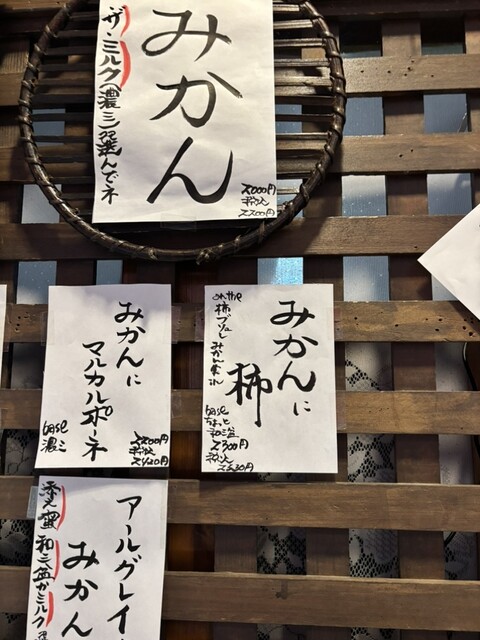 みかん
ザ・ミルク
選んでネ
2000円
税込
2200円
みかんに
マルカルポーネ
base
濃ミ
2200円
税込
2420円
みかんに
柿
on the
柿ブリュレ
base
ちょっと
和三盆
2300円
税込
2530円
アールグレイ
みかん
添え蜜
和三盆かミルク